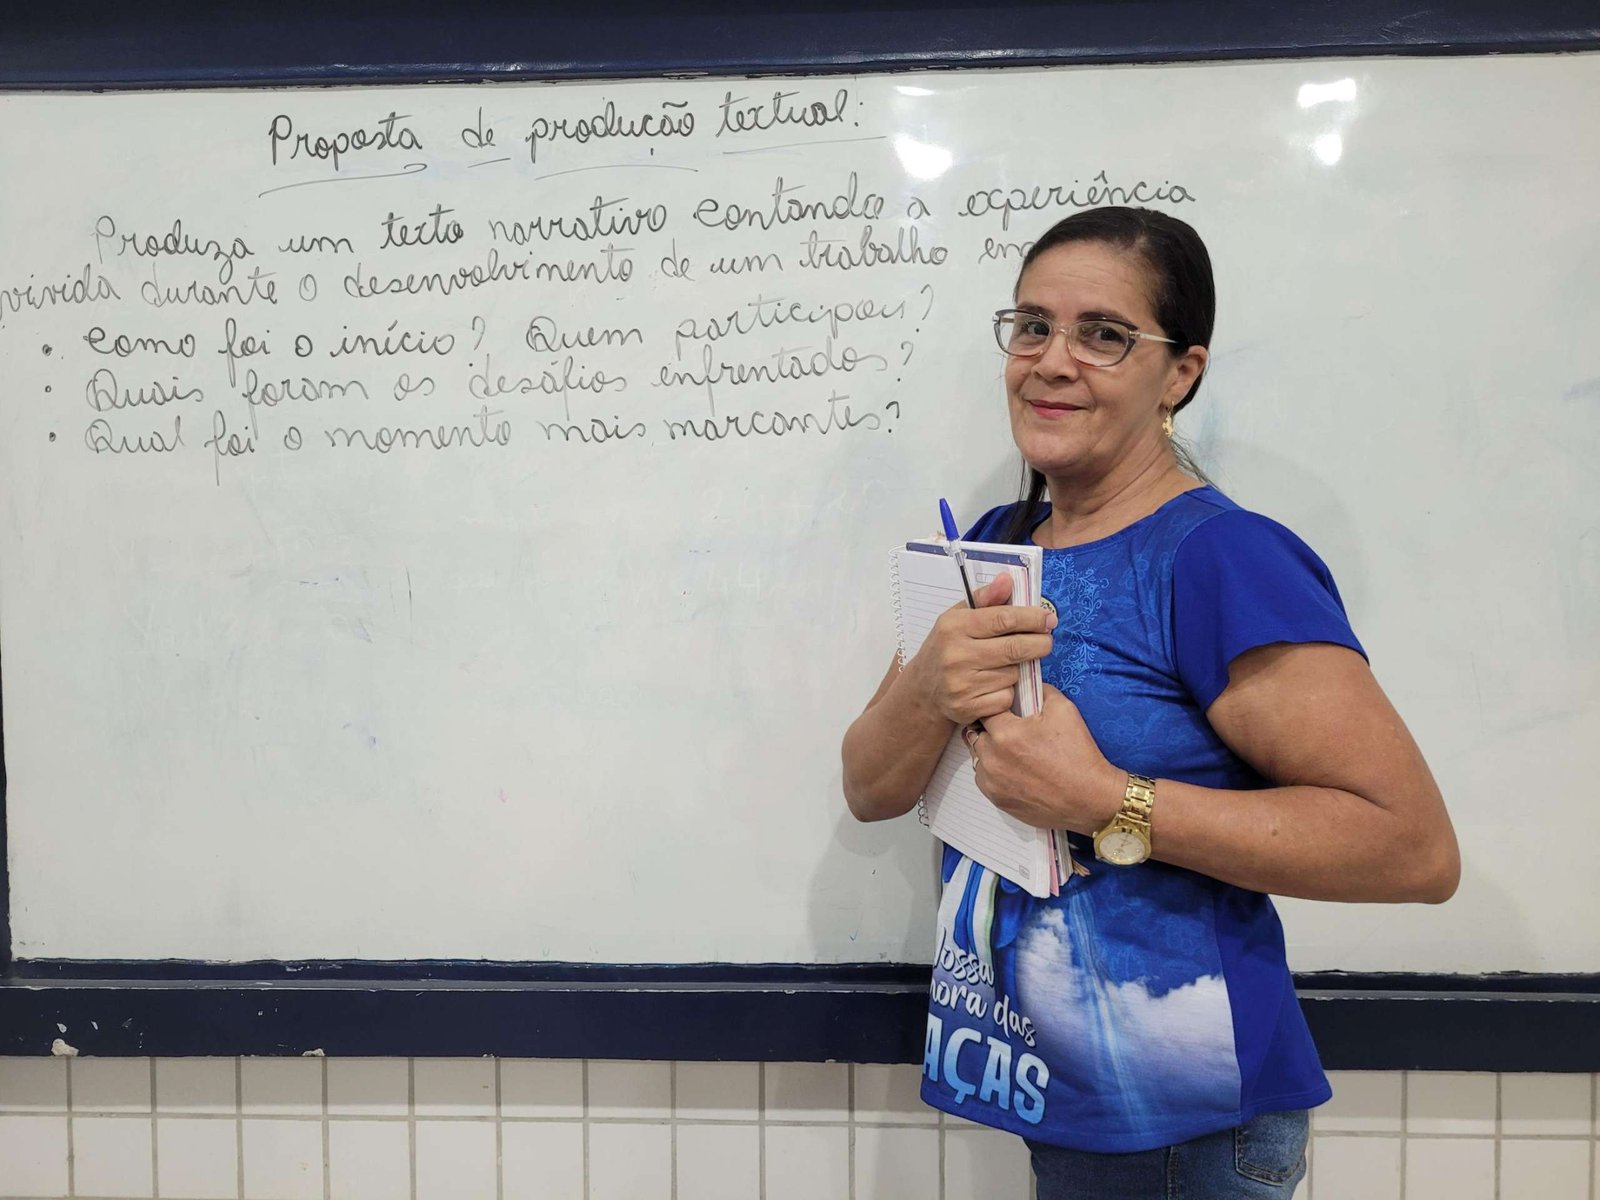 Proposta de produção textual:
Produza um texto narrativo contando a experiência
vivida durante o desenvolvimento de um trabalho em
• Como foi o início? Quem participou?
• Quais foram os desafios enfrentados?
• Qual foi o momento mais marcantes?
Nossa
hora das
AÇAS